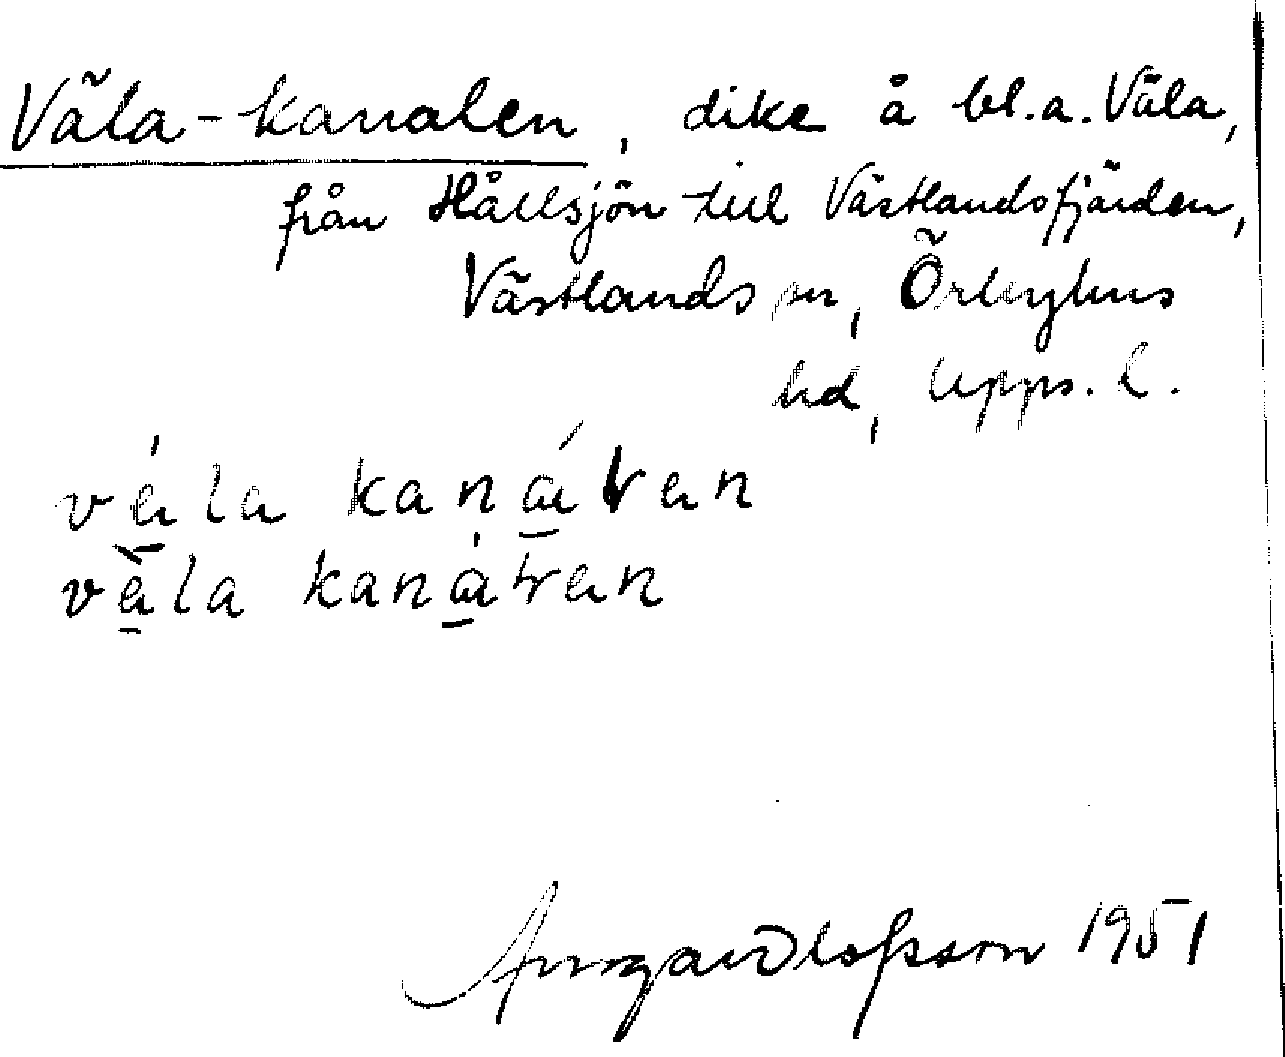 Väla-kanalen, dike å bl.a. Väla,
från Hållsjön till Västlandsfjärden,
Västlands sn, Örbyhus
hd, Upps. l.
väla kanalen
väla kanalen
Olofsson 1951